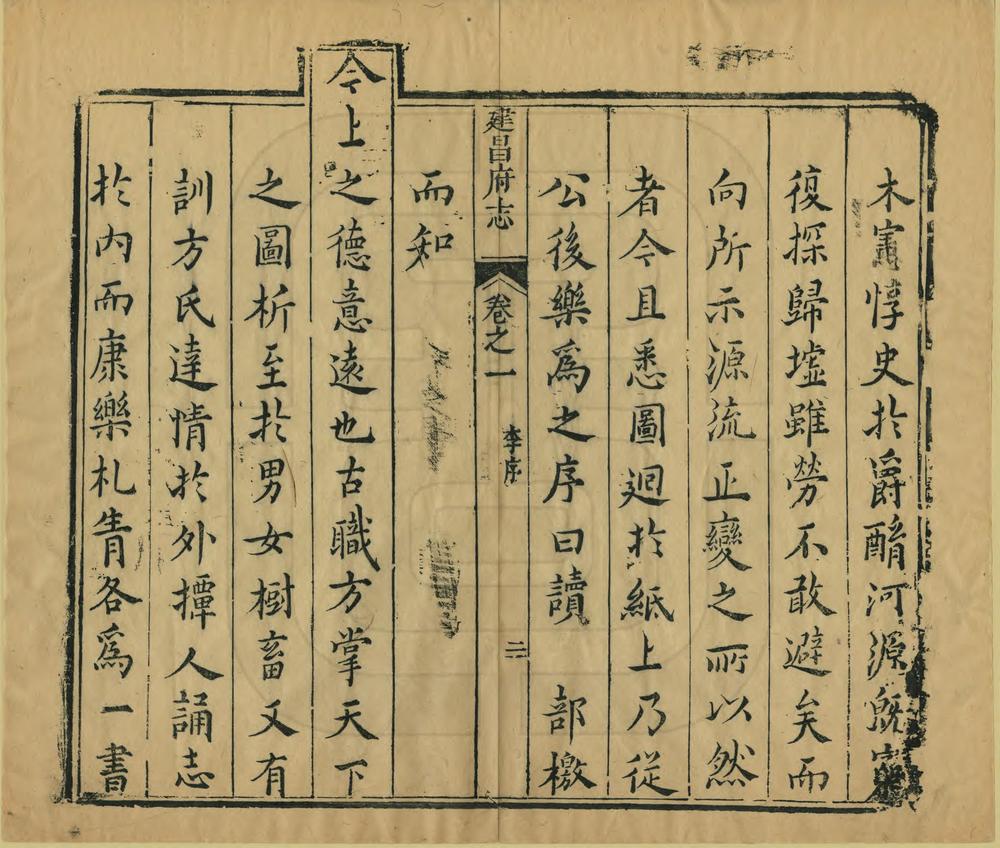 木寓惇史於爵酳河源既
復探歸墟雖勞不敢避矣而
向所示源流正變之所以然
者今且悉圖廻於紙上乃從
公後樂為之序曰讀 部檄
而知
建昌府志 卷之一 李序 二
今上之德意遠也古職方掌天下
之圖析至於男女樹畜又有
訓方氏達情於外撢人誦志
於内而康樂札眚各為一書